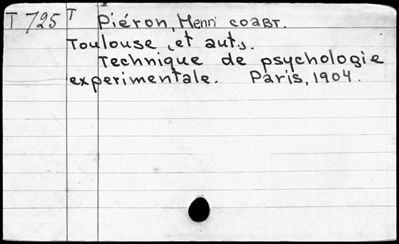 T 725 T Piéron, Henri СОАВТ.
Toulouse, et aut.
Technique de psychologie
experimentale. Paris, 1904.